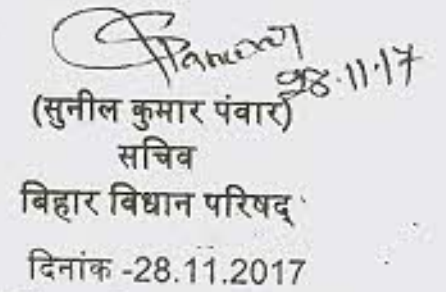 Panwar
28.11.17
(सुनील कुमार पंवार)
सचिव
बिहार विधान परिषद्
दिनांक -28.11.2017